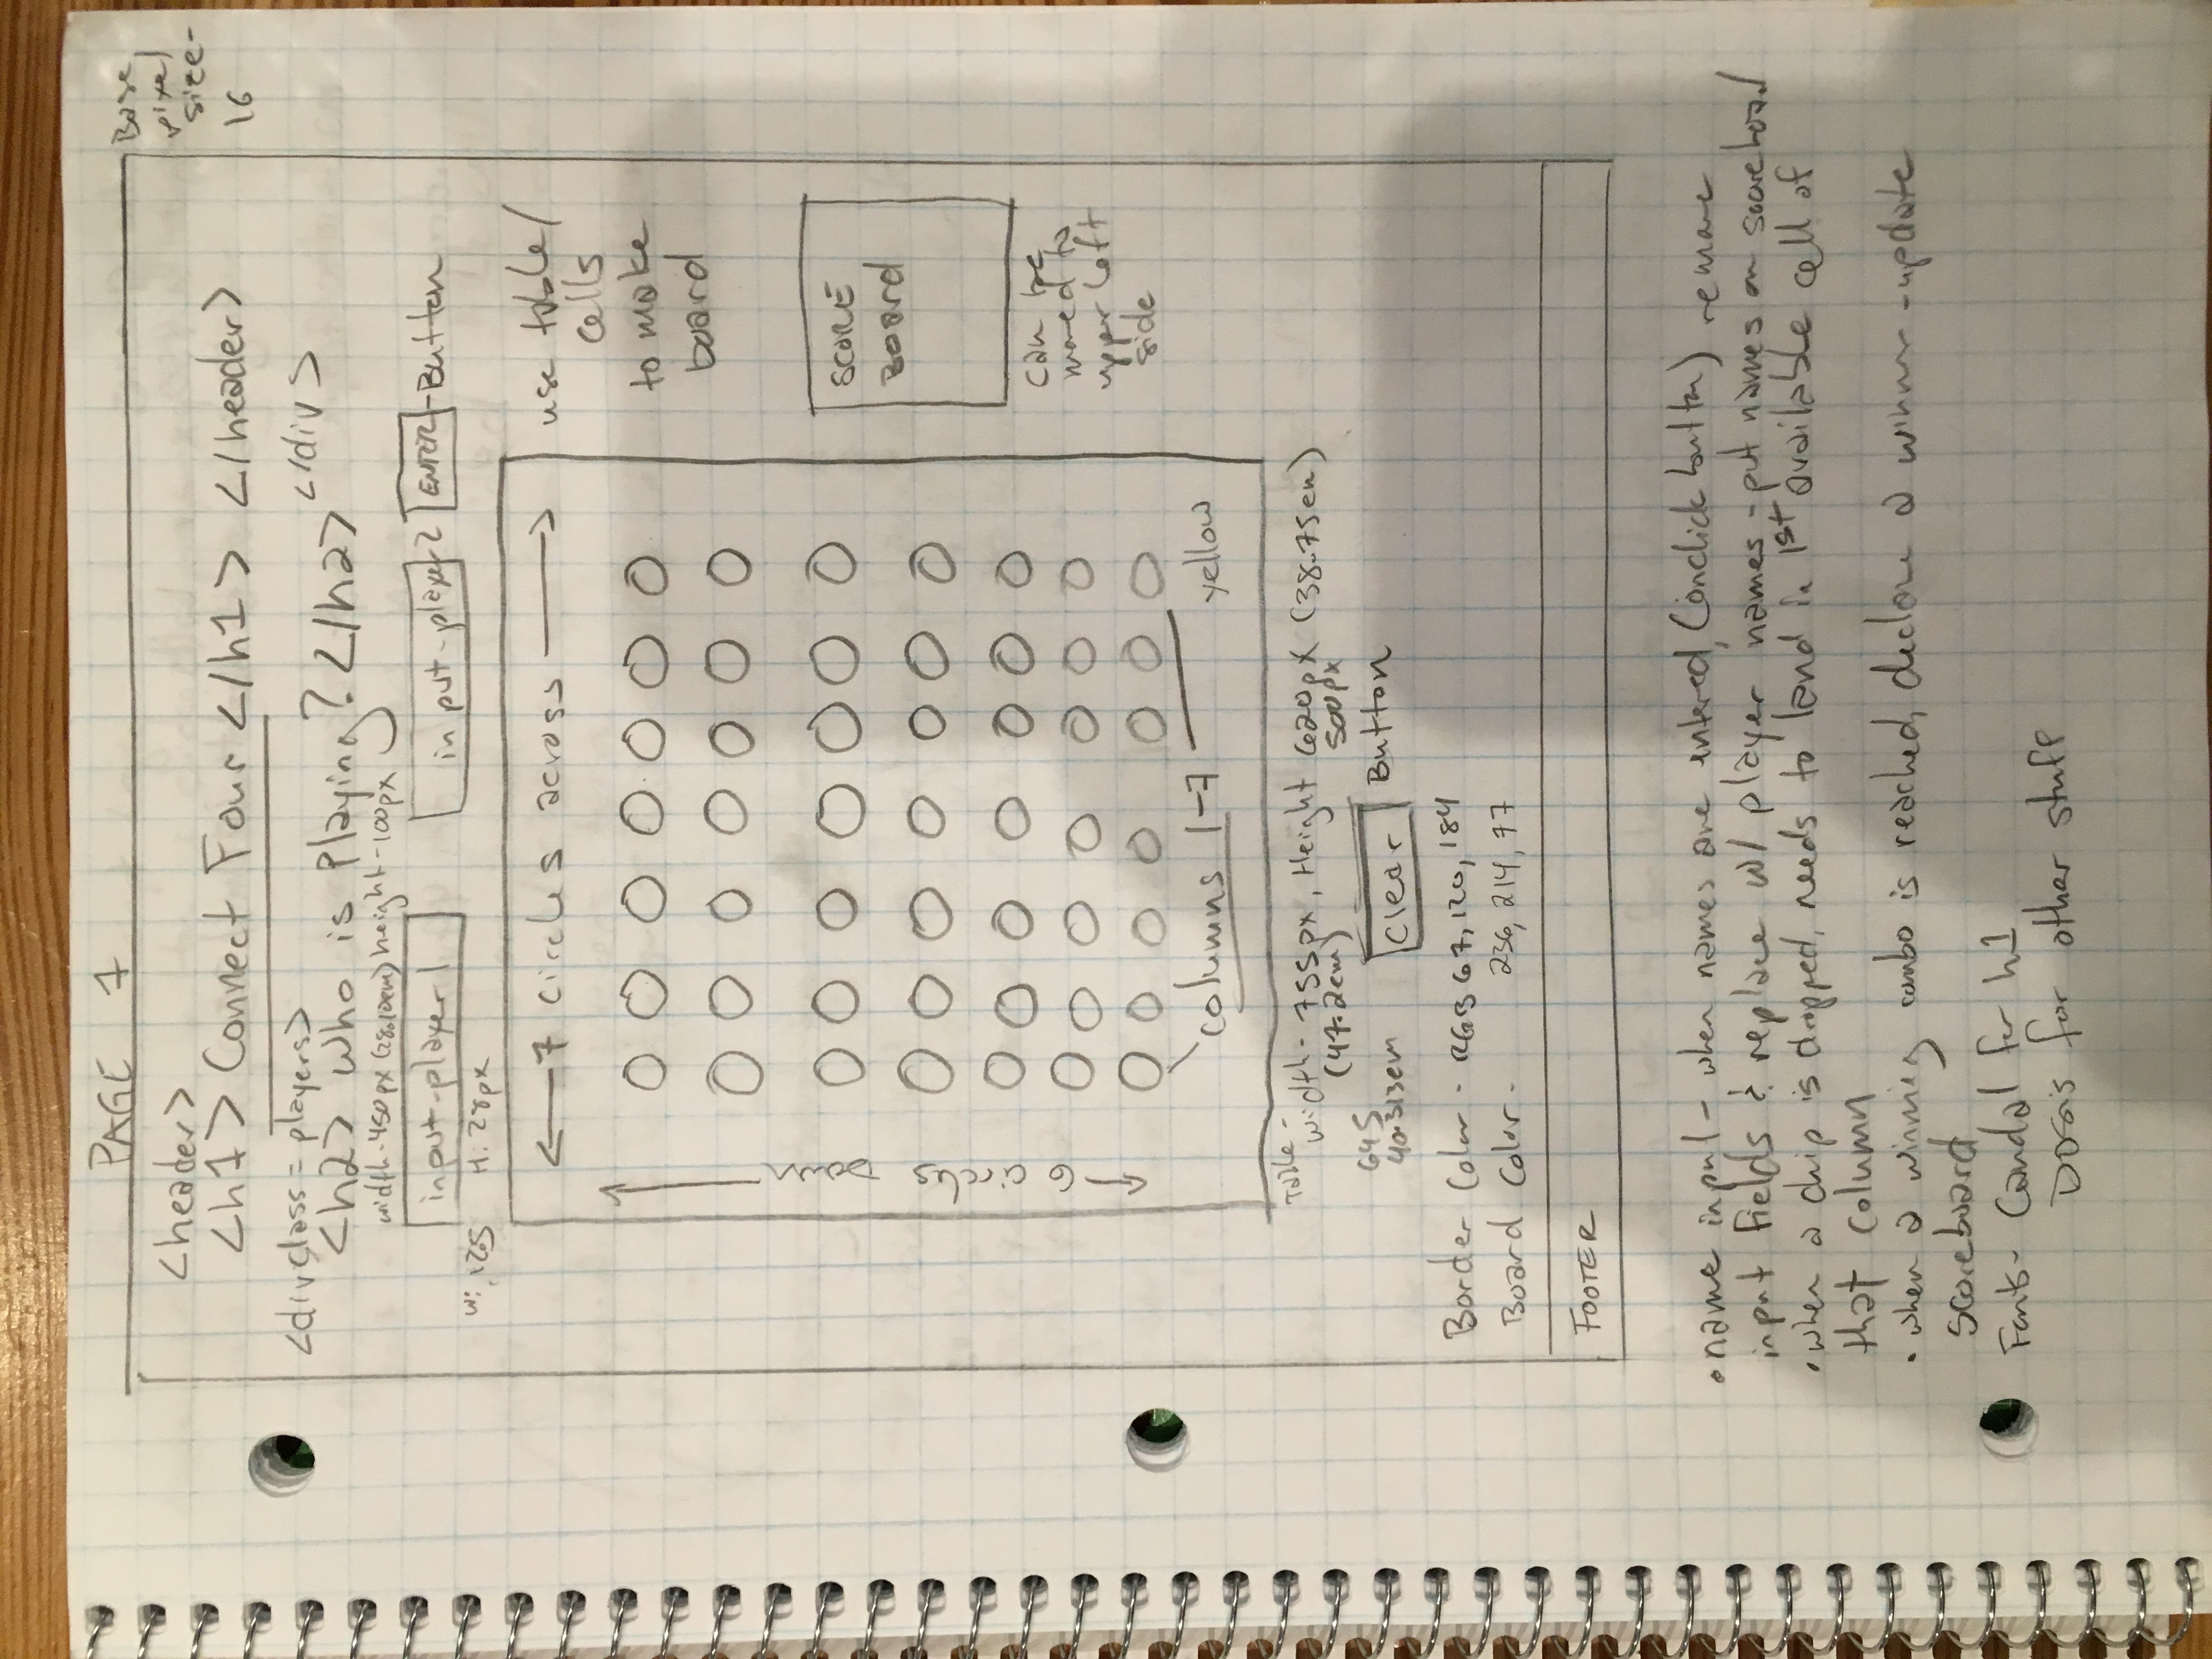 PAGE 1
Base
pixel
size-
16
<header>
<h1> Connect Four </h1> </header>
<div class = players> </div>
<h2> Who is Playing? </h2>
width-450px (28.10em) height-100px
input-player1 input-player2 ENTER -Button
w: 125 H: 28px
←7 circles across→
use table/
cells
to make
board
←6 circles Down→
SCORE
Board
can be
moved to
upper left
side
columns 1-7 yellow
Table-
width- 755px, Height 620px (38.75em)
(47.2em) 500px
645
40.313em
clear Button
Border Color - RGB 67, 120, 184
Board Color - 236, 214, 77
FOOTER
• name input - when names are entered, (onclick button) remove
input fields & replace w/ player names - put names on scoreboard
• when a chip is dropped, needs to land in 1st available cell of
that column
• when a winning combo is reached, declare a winner - update
scoreboard
Fonts- Candal for h1
Dosis for other stuff